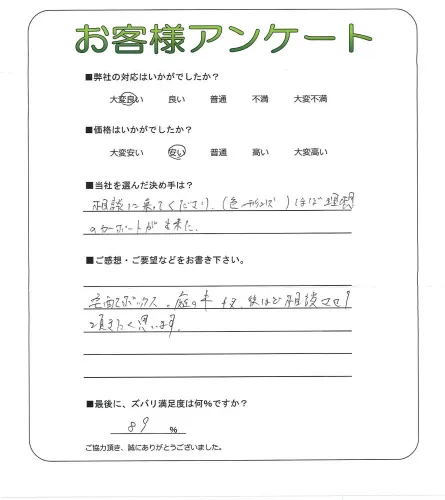 お客様アンケート
■弊社の対応はいかがでしたか？
大変良い 良い 普通 不満 大変不満
■価格はいかがでしたか？
大変安い 安い 普通 高い 大変高い
■当社を選んだ決め手は？
相談に乗ってくださり、(色 サイズ)ほぼ理想
のカーポートが出来た。
■ご感想・ご要望などをお書き下さい。
宅配ボックス、庭の木 後ほど相談させて
頂きたく思います。
■最後に、ズバリ満足度は何％ですか？
89 ％
ご協力頂き、誠にありがとうございました。